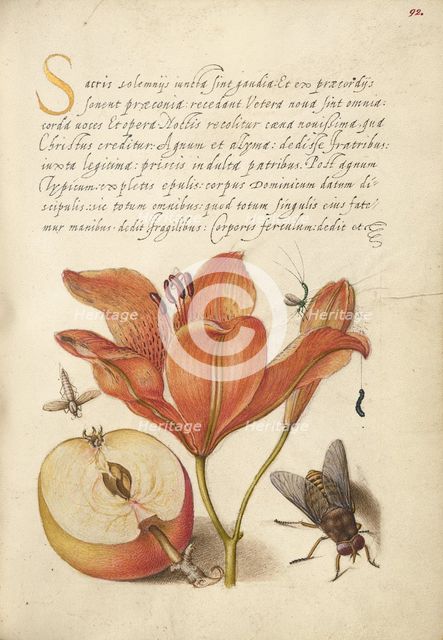 92.
Sacris solemnijs iuncta sint gaudia. Et ex præcordijs
sonent præconia: recedant Vetera nova sint omnia:
corda voces Et opera Noctis recolitur cæna novissima. qua
Christus creditur: Agnum et azyma: dedisse fratribus:
iuxta legitima: priscis indulta patribus. Post agnum
Typicum: expletis epulis: corpus Dominicum datum di-
scipulis: sic totum omnibus: quod totum singulis eius fate-
mur manibus. dedit fragilibus: Corporis ferculum: dedit etc.
Heritage Images
Heritage Images
Heritage Images
Heritage Images
Heritage Images
Heritage Images